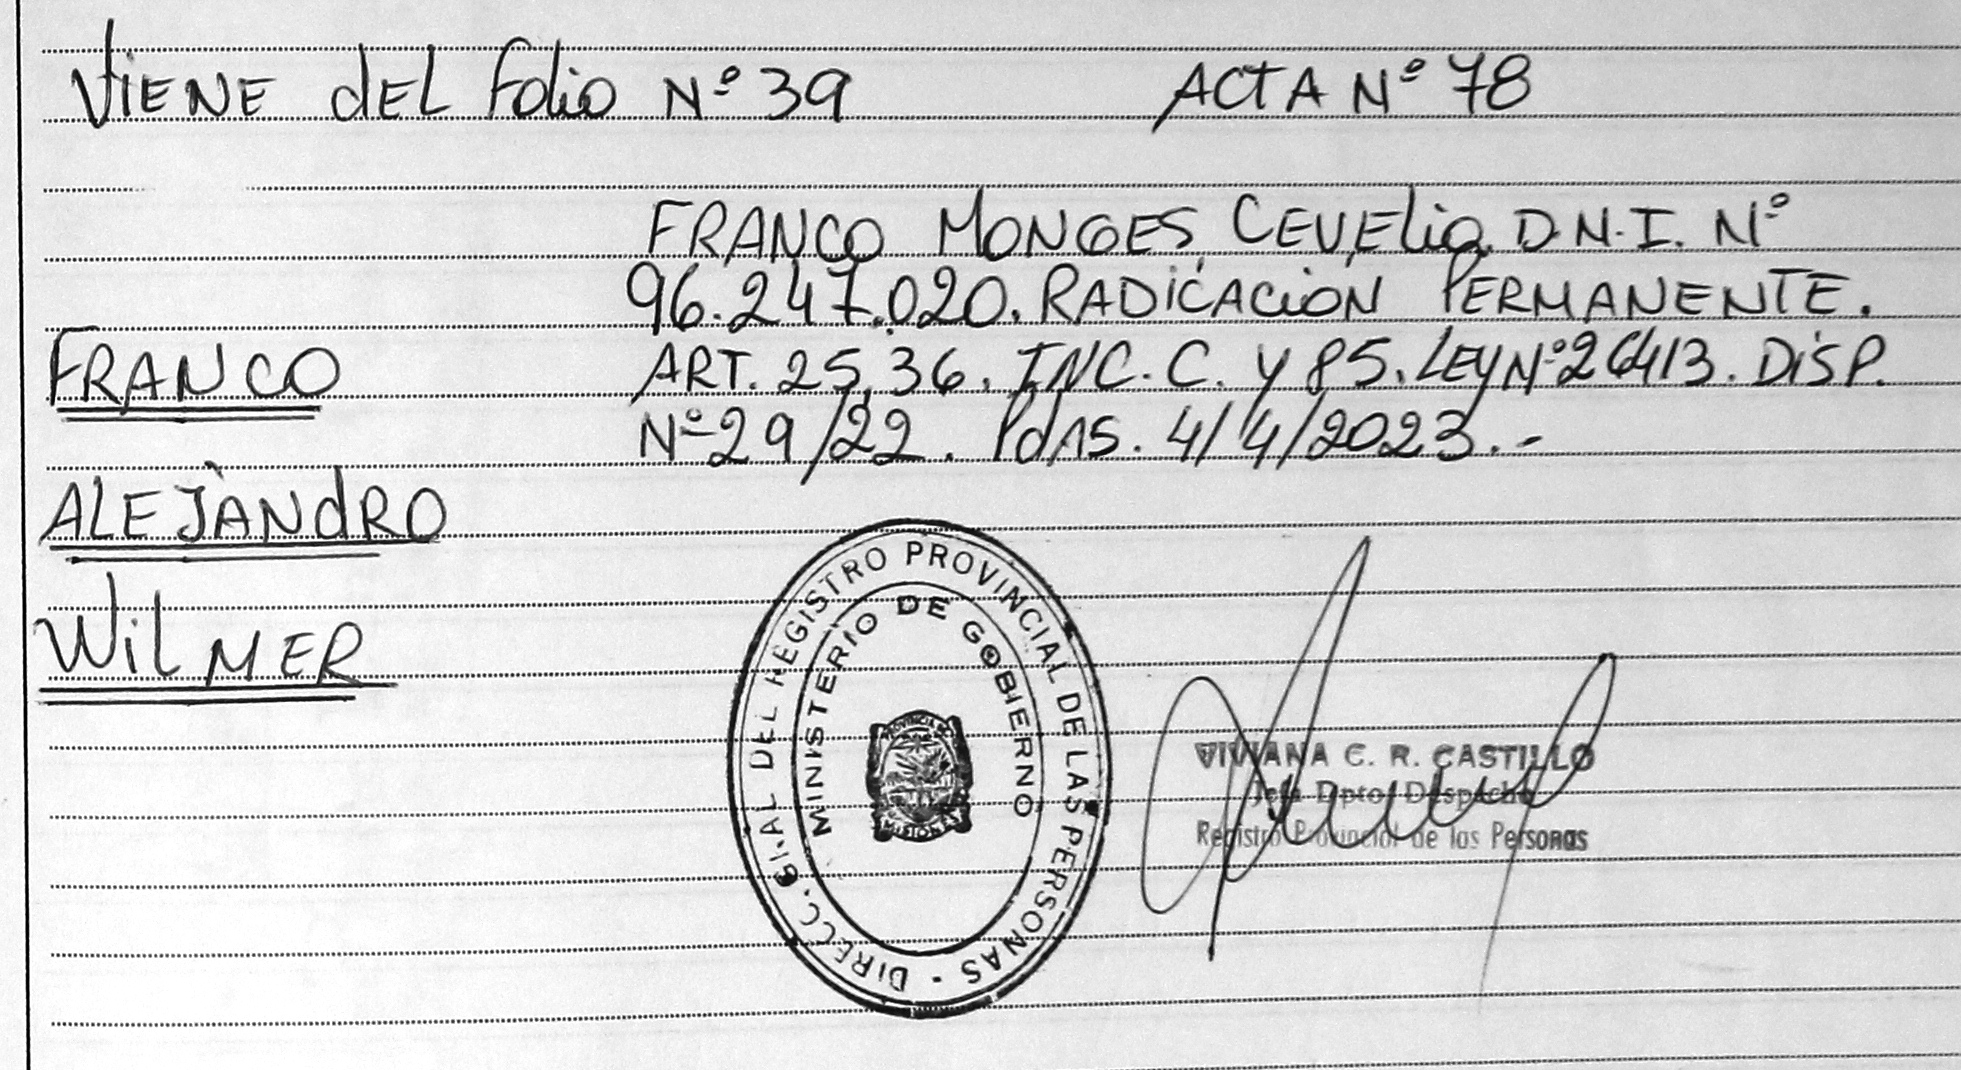 ViENE dEL folio Nº 39 ACTA Nº 78
FRANCO MONGES, CEVELia. D.N.I. Nº
96.247.020. RADiCACiON PERMANENTE.
FRANCO ART. 25, 36. INC. C. y 85. LEY Nº 26413. DiSP.
Nº 29/22. Pdas. 4/4/2023.-
ALEJANdRO
WiLMER
DIRECC. GRAL DEL REGISTRO PROVINCIAL DE LAS PERSONAS -
MINISTERIO DE GOBIERNO
PROVINCIA DE
MISIONES
VIVIANA C. R. CASTILLO
Jefa Dpto. Despacho
Registro Provincial de las Personas